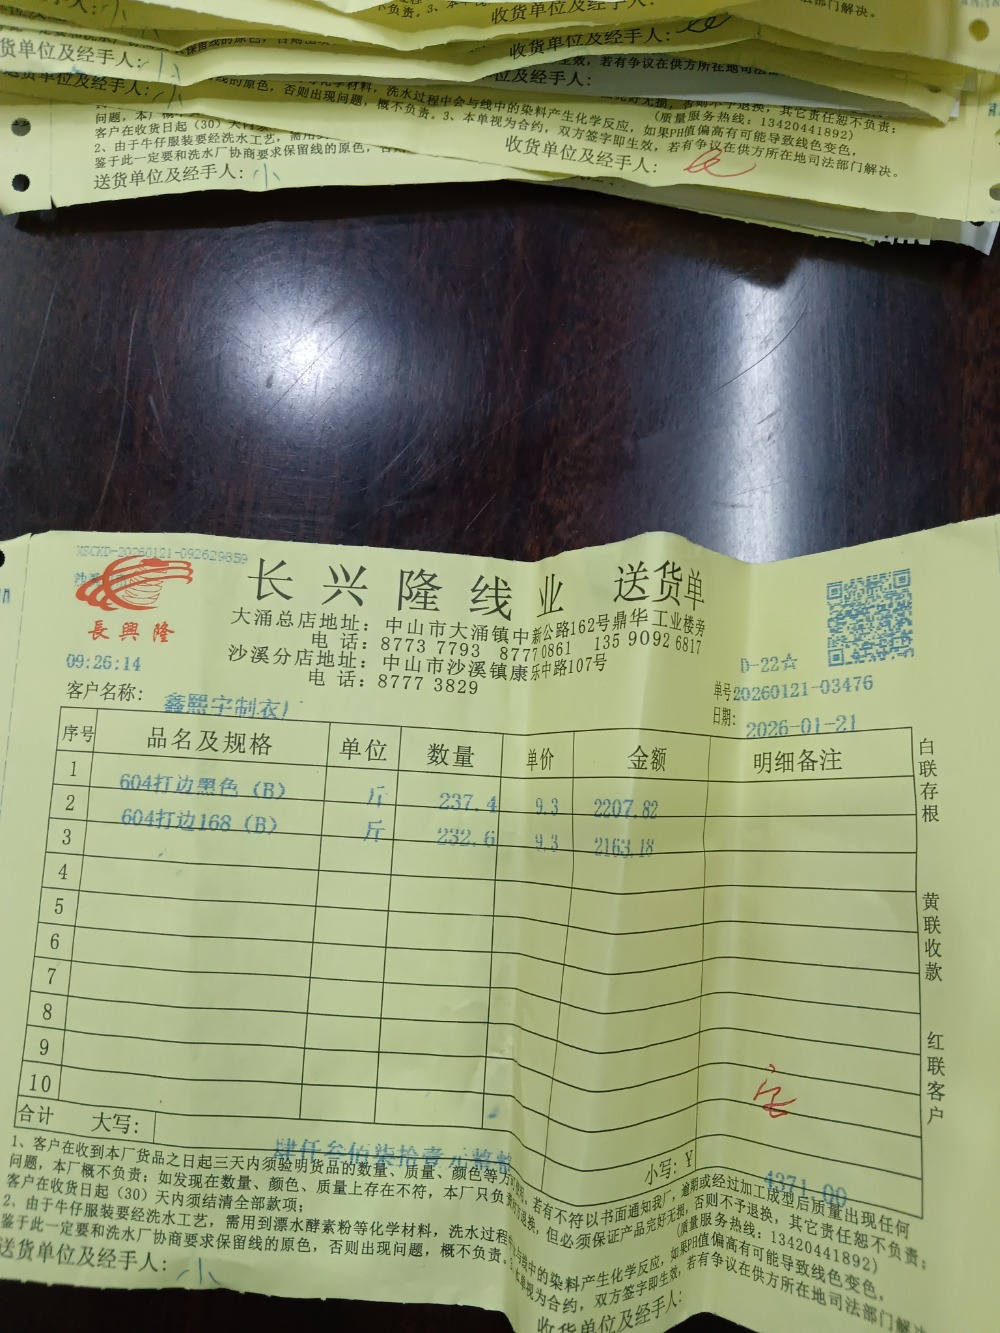 收货单位及经手人:
货单位及经手人:
收货单位及经手人:
送货单位及经手人:
位及经手人:
问题,本厂概不负
(质量服务热线: 13420441892)
客户在收货日起(30)天内须
2、由于牛仔服装要经洗水工艺,需用
鉴于此一定要和洗水厂协商要求保留线的原色,否
概不负责。3、本单视为合约,双方签字即生效,若有争议在供方所在地司法部门解决。
送货单位及经手人: 小
收货单位及经手人:
XSCKD-20260121-092629859
長興隆
长兴隆线业 送货单
大涌总店地址: 中山市大涌镇中新公路162号鼎华工业楼旁
电 话: 8773 7793 8777 0861 135 9092 6817
沙溪分店地址: 中山市沙溪镇康乐中路107号
电 话: 8777 3829
09:26:14
D-22☆
单号 20260121-03476
客户名称: 鑫熙宇制衣厂
日期: 2026-01-21
序号 品名及规格 单位 数量 单价 金额 明细备注
1 604打边黑色(B) 斤 237.4 9.3 2207.82
2 604打边168(B) 斤 232.6 9.3 2163.18
3
4
5
6
7
8
9
10
白联存根
黄联收款
红联客户
合计 大写: 肆仟叁佰柒拾壹元整整 小写: ¥ 4371.00
1、客户在收到本厂货品之日起三天内须验明货品的数量、质量、颜色等方可使用,若有不符以书面通知我厂,逾期或经过加工成型后质量出现任何
问题,本厂概不负责;如发现在数量、颜色、质量上存在不符,本厂只负责打退换,但必须保证产品完好无损,否则不予退换,其它责任恕不负责;
客户在收货日起(30)天内须结清全部款项; (质量服务热线: 13420441892)
2、由于牛仔服装要经洗水工艺,需用到漂水酵素粉等化学材料,洗水过程中会与线中的染料产生化学反应,如果PH值偏高有可能导致线色变色,
鉴于此一定要和洗水厂协商要求保留线的原色,否则出现问题,概不负责。3、本单视为合约,双方签字即生效,若有争议在供方所在地司法部门解决
送货单位及经手人: 小
收货单位及经手人: